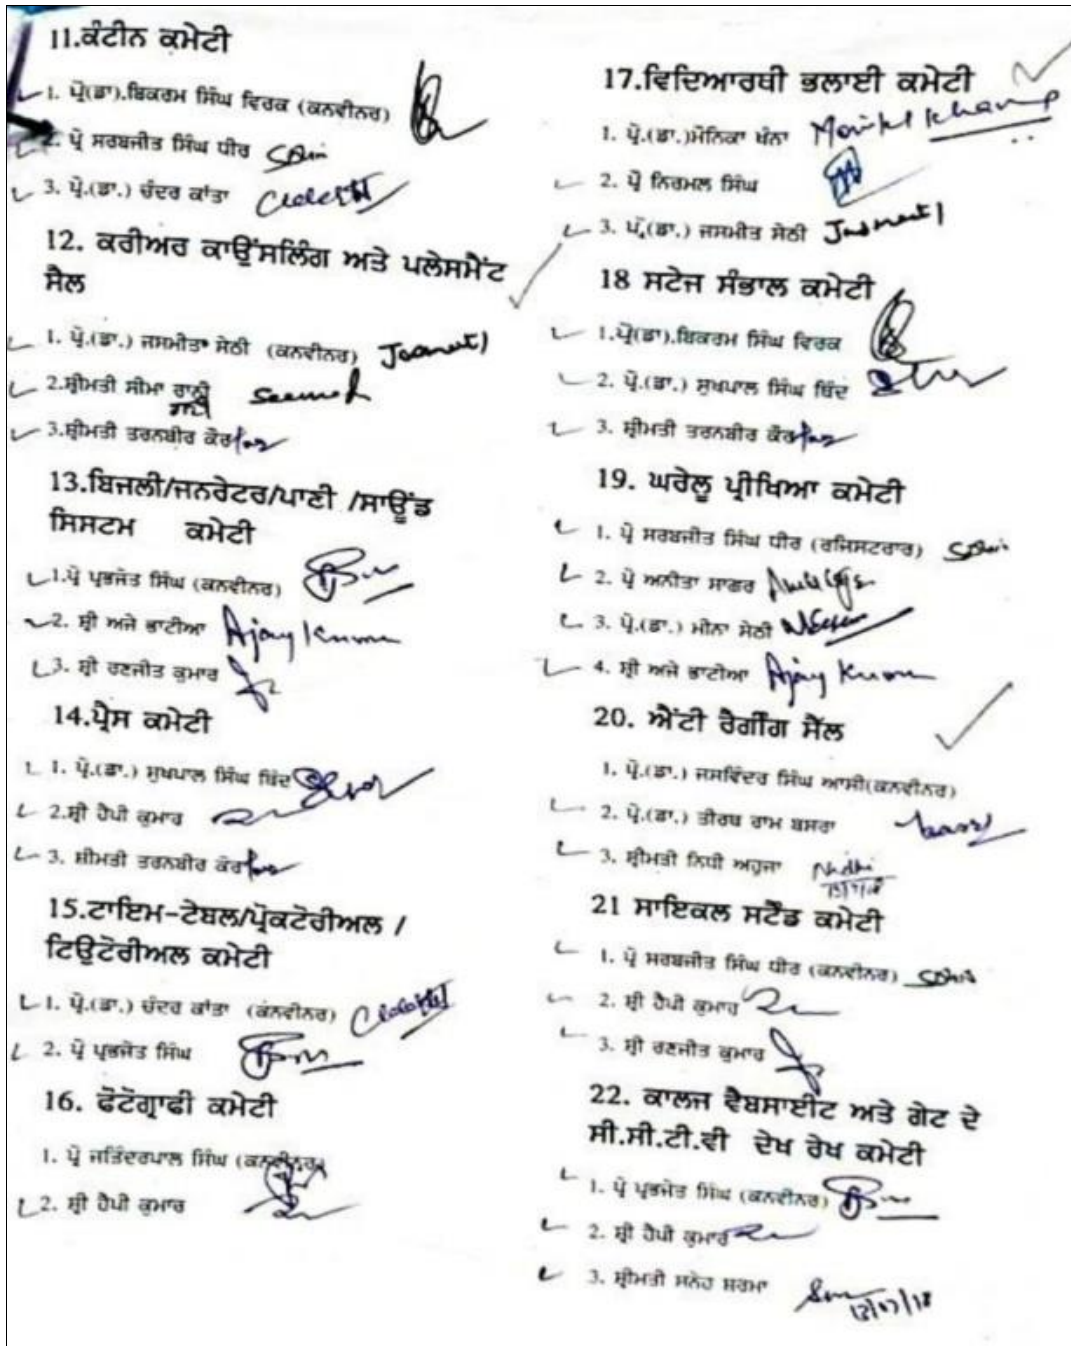 11.ਕੰਟੀਨ ਕਮੇਟੀ
1. ਪ੍ਰੋ(ਡਾ).ਬਿਕਰਮ ਸਿੰਘ ਵਿਰਕ (ਕਨਵੀਨਰ)
2. ਪ੍ਰੋ ਸਰਬਜੀਤ ਸਿੰਘ ਧੀਰ
3. ਪ੍ਰੋ.(ਡਾ.) ਚੰਦਰ ਕਾਂਤਾ
12. ਕਰੀਅਰ ਕਾਉਂਸਲਿੰਗ ਅਤੇ ਪਲੇਸਮੈਂਟ
ਸੈਲ
1. ਪ੍ਰੋ.(ਡਾ.) ਜਸਮੀਤਾ ਸੇਠੀ (ਕਨਵੀਨਰ) Jasmeet
2.ਸ਼੍ਰੀਮਤੀ ਸੀਮਾ ਰਾਣੀ Seema
3.ਸ਼੍ਰੀਮਤੀ ਤਰਨਬੀਰ ਕੌਰ
13.ਬਿਜਲੀ/ਜਨਰੇਟਰ/ਪਾਣੀ /ਸਾਊਂਡ
ਸਿਸਟਮ ਕਮੇਟੀ
1.ਪ੍ਰੋ ਪ੍ਰਭਜੋਤ ਸਿੰਘ (ਕਨਵੀਨਰ)
2. ਸ਼੍ਰੀ ਅਜੇ ਭਾਟੀਆ Ajay Kumar
3. ਸ਼੍ਰੀ ਰਣਜੀਤ ਕੁਮਾਰ
14.ਪ੍ਰੈਸ ਕਮੇਟੀ
1. ਪ੍ਰੋ.(ਡਾ.) ਸੁਖਪਾਲ ਸਿੰਘ ਥਿੰਦ
2.ਸ਼੍ਰੀ ਹੈਪੀ ਕੁਮਾਰ
3. ਸ਼੍ਰੀਮਤੀ ਤਰਨਬੀਰ ਕੌਰ
15.ਟਾਇਮ-ਟੇਬਲ/ਪ੍ਰੋਕਟੋਰੀਅਲ /
ਟਿਊਟੋਰੀਅਲ ਕਮੇਟੀ
1. ਪ੍ਰੋ.(ਡਾ.) ਚੰਦਰ ਕਾਂਤਾ (ਕਨਵੀਨਰ)
2. ਪ੍ਰੋ ਪ੍ਰਭਜੋਤ ਸਿੰਘ
16. ਫੋਟੋਗ੍ਰਾਫੀ ਕਮੇਟੀ
1. ਪ੍ਰੋ ਜਤਿੰਦਰਪਾਲ ਸਿੰਘ (ਕਨਵੀਨਰ)
2. ਸ਼੍ਰੀ ਹੈਪੀ ਕੁਮਾਰ
17.ਵਿਦਿਆਰਥੀ ਭਲਾਈ ਕਮੇਟੀ
1. ਪ੍ਰੋ.(ਡਾ.)ਮੋਨਿਕਾ ਖੰਨਾ
2. ਪ੍ਰੋ ਨਿਰਮਲ ਸਿੰਘ
3. ਪ੍ਰੋ.(ਡਾ.) ਜਸਮੀਤ ਸੇਠੀ Jasmeet
18 ਸਟੇਜ ਸੰਭਾਲ ਕਮੇਟੀ
1.ਪ੍ਰੋ(ਡਾ).ਬਿਕਰਮ ਸਿੰਘ ਵਿਰਕ
2. ਪ੍ਰੋ.(ਡਾ.) ਸੁਖਪਾਲ ਸਿੰਘ ਥਿੰਦ
3. ਸ਼੍ਰੀਮਤੀ ਤਰਨਬੀਰ ਕੌਰ
19. ਘਰੇਲੂ ਪ੍ਰੀਖਿਆ ਕਮੇਟੀ
1. ਪ੍ਰੋ ਸਰਬਜੀਤ ਸਿੰਘ ਧੀਰ (ਰਜਿਸਟਰਾਰ)
2. ਪ੍ਰੋ ਅਨੀਤਾ ਸਾਗਰ
3. ਪ੍ਰੋ.(ਡਾ.) ਮੀਨਾ ਸੇਠੀ
4. ਸ਼੍ਰੀ ਅਜੇ ਭਾਟੀਆ Ajay Kumar
20. ਐਂਟੀ ਰੈਗਿੰਗ ਸੈੱਲ
1. ਪ੍ਰੋ.(ਡਾ.) ਜਸਵਿੰਦਰ ਸਿੰਘ ਆਸੀ(ਕਨਵੀਨਰ)
2. ਪ੍ਰੋ.(ਡਾ.) ਤੀਰਥ ਰਾਮ ਬਸਰਾ
3. ਸ਼੍ਰੀਮਤੀ ਨਿਧੀ ਅਹੂਜਾ Nidhi
21 ਸਾਇਕਲ ਸਟੈਂਡ ਕਮੇਟੀ
1. ਪ੍ਰੋ ਸਰਬਜੀਤ ਸਿੰਘ ਧੀਰ (ਕਨਵੀਨਰ)
2. ਸ਼੍ਰੀ ਹੈਪੀ ਕੁਮਾਰ
3. ਸ਼੍ਰੀ ਰਣਜੀਤ ਕੁਮਾਰ
22. ਕਾਲਜ ਵੈਬਸਾਈਟ ਅਤੇ ਗੇਟ ਦੇ
ਸੀ.ਸੀ.ਟੀ.ਵੀ ਦੇਖ ਰੇਖ ਕਮੇਟੀ
1. ਪ੍ਰੋ ਪ੍ਰਭਜੋਤ ਸਿੰਘ (ਕਨਵੀਨਰ)
2. ਸ਼੍ਰੀ ਹੈਪੀ ਕੁਮਾਰ
3. ਸ਼੍ਰੀਮਤੀ ਸਨੇਹ ਸ਼ਰਮਾ
13/07/18